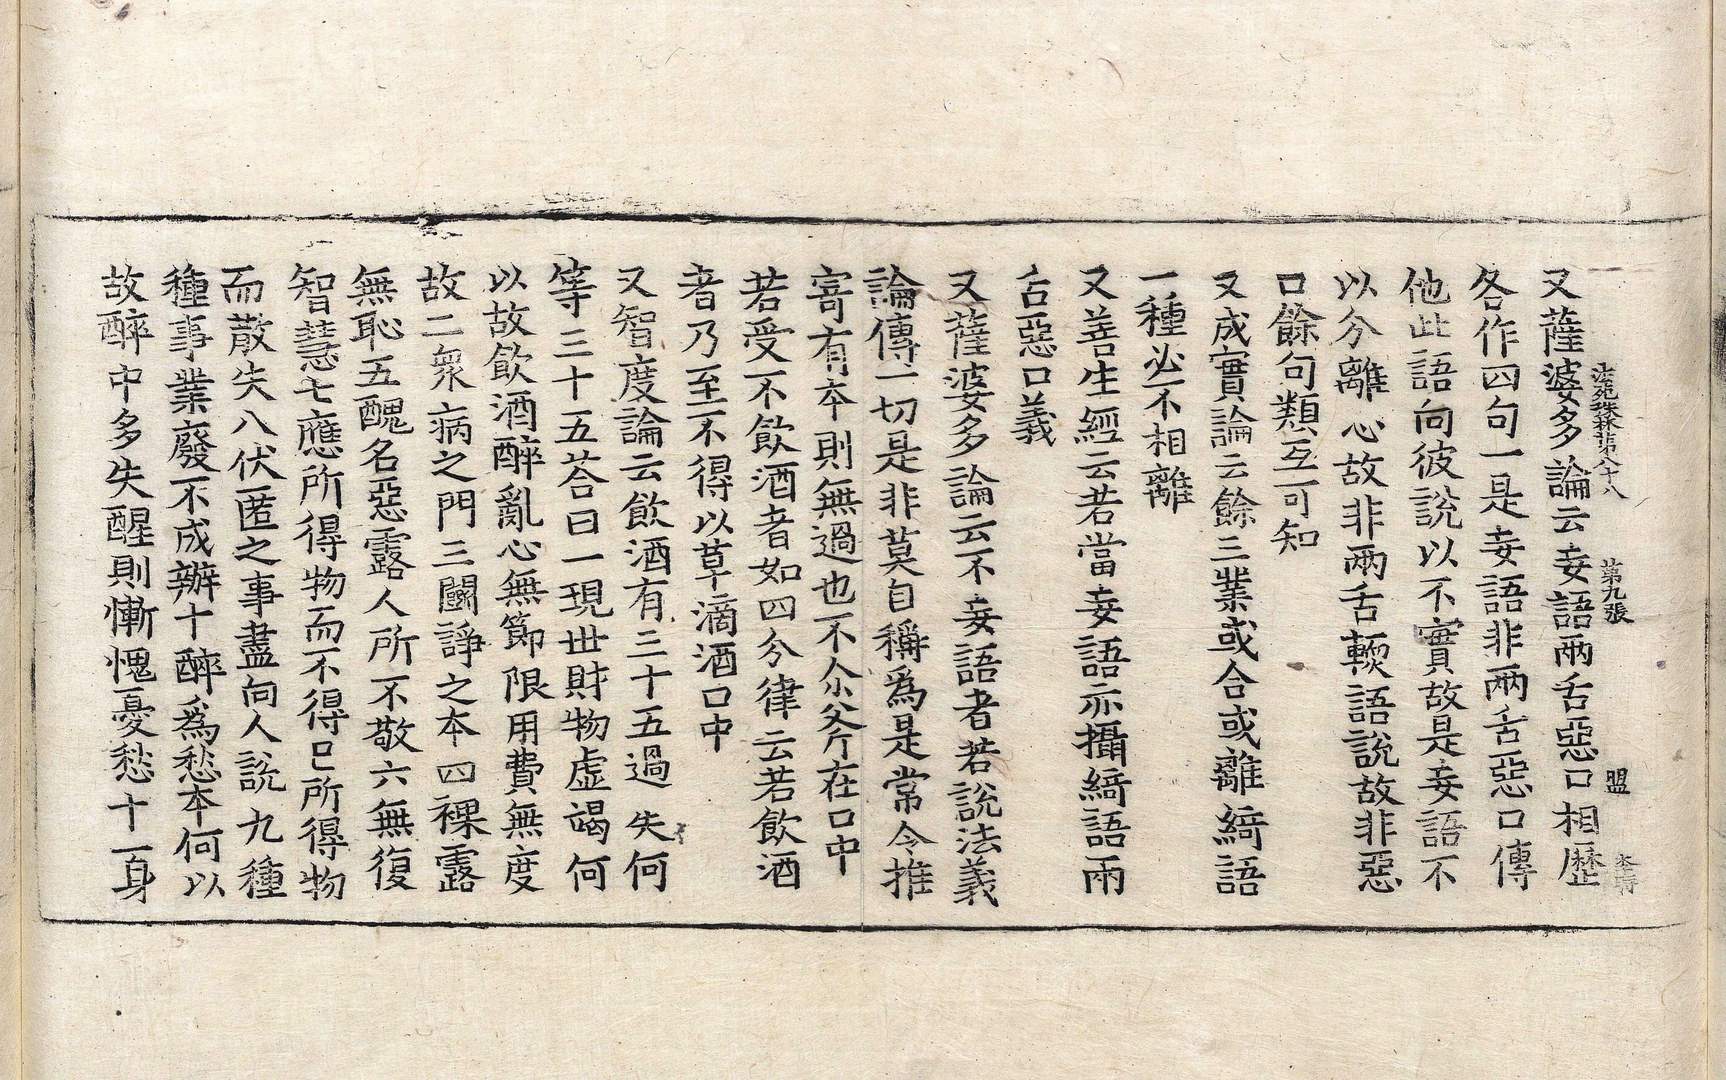 法苑珠林第八十八　第九張　盟　李特
又薩婆多論云妄語兩舌惡口相歷
各作四句一是妄語非兩舌惡口傳
他此語向彼說以不實故是妄語不
以分離心故非兩舌輭語說故非惡
口餘句類互可知
又成實論云餘三業或合或離綺語
一種必不相離
又善生經云若當妄語亦攝綺語兩
舌惡口義
又薩婆多論云不妄語者若說法義
論傳一切是非莫自稱爲是常令推
寄有本則無過也不尒斧在口中
若受不飲酒者如四分律云若飲酒
者乃至不得以草滴酒口中
又智度論云飲酒有三十五過失何
等三十五荅曰一現世財物虛竭何
以故飲酒醉亂心無節限用費無度
故二衆病之門三鬭諍之本四裸露
無恥五醜名惡露人所不敬六無復
智慧七應所得物而不得已所得物
而散失八伏匿之事盡向人說九種
種事業廢不成辦十醉爲愁本何以
故醉中多失醒則慚愧憂愁十一身